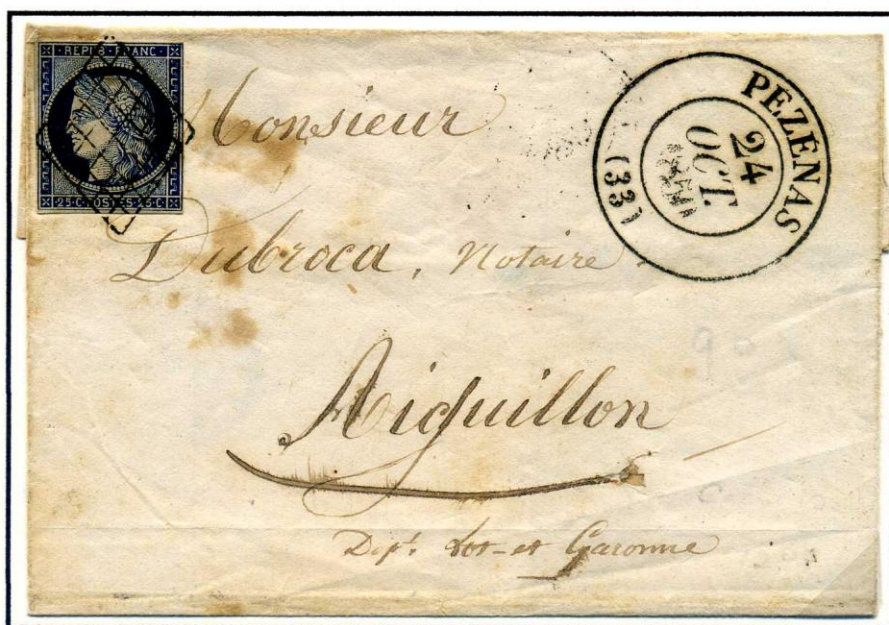 REPUB · FRANC ·
25 · C · POSTES · 25 · C
PÉZÉNAS
24
OCT.
(33)
Monsieur
Dubroca, Notaire
Aiguillon
Dept. Lot-et Garonne